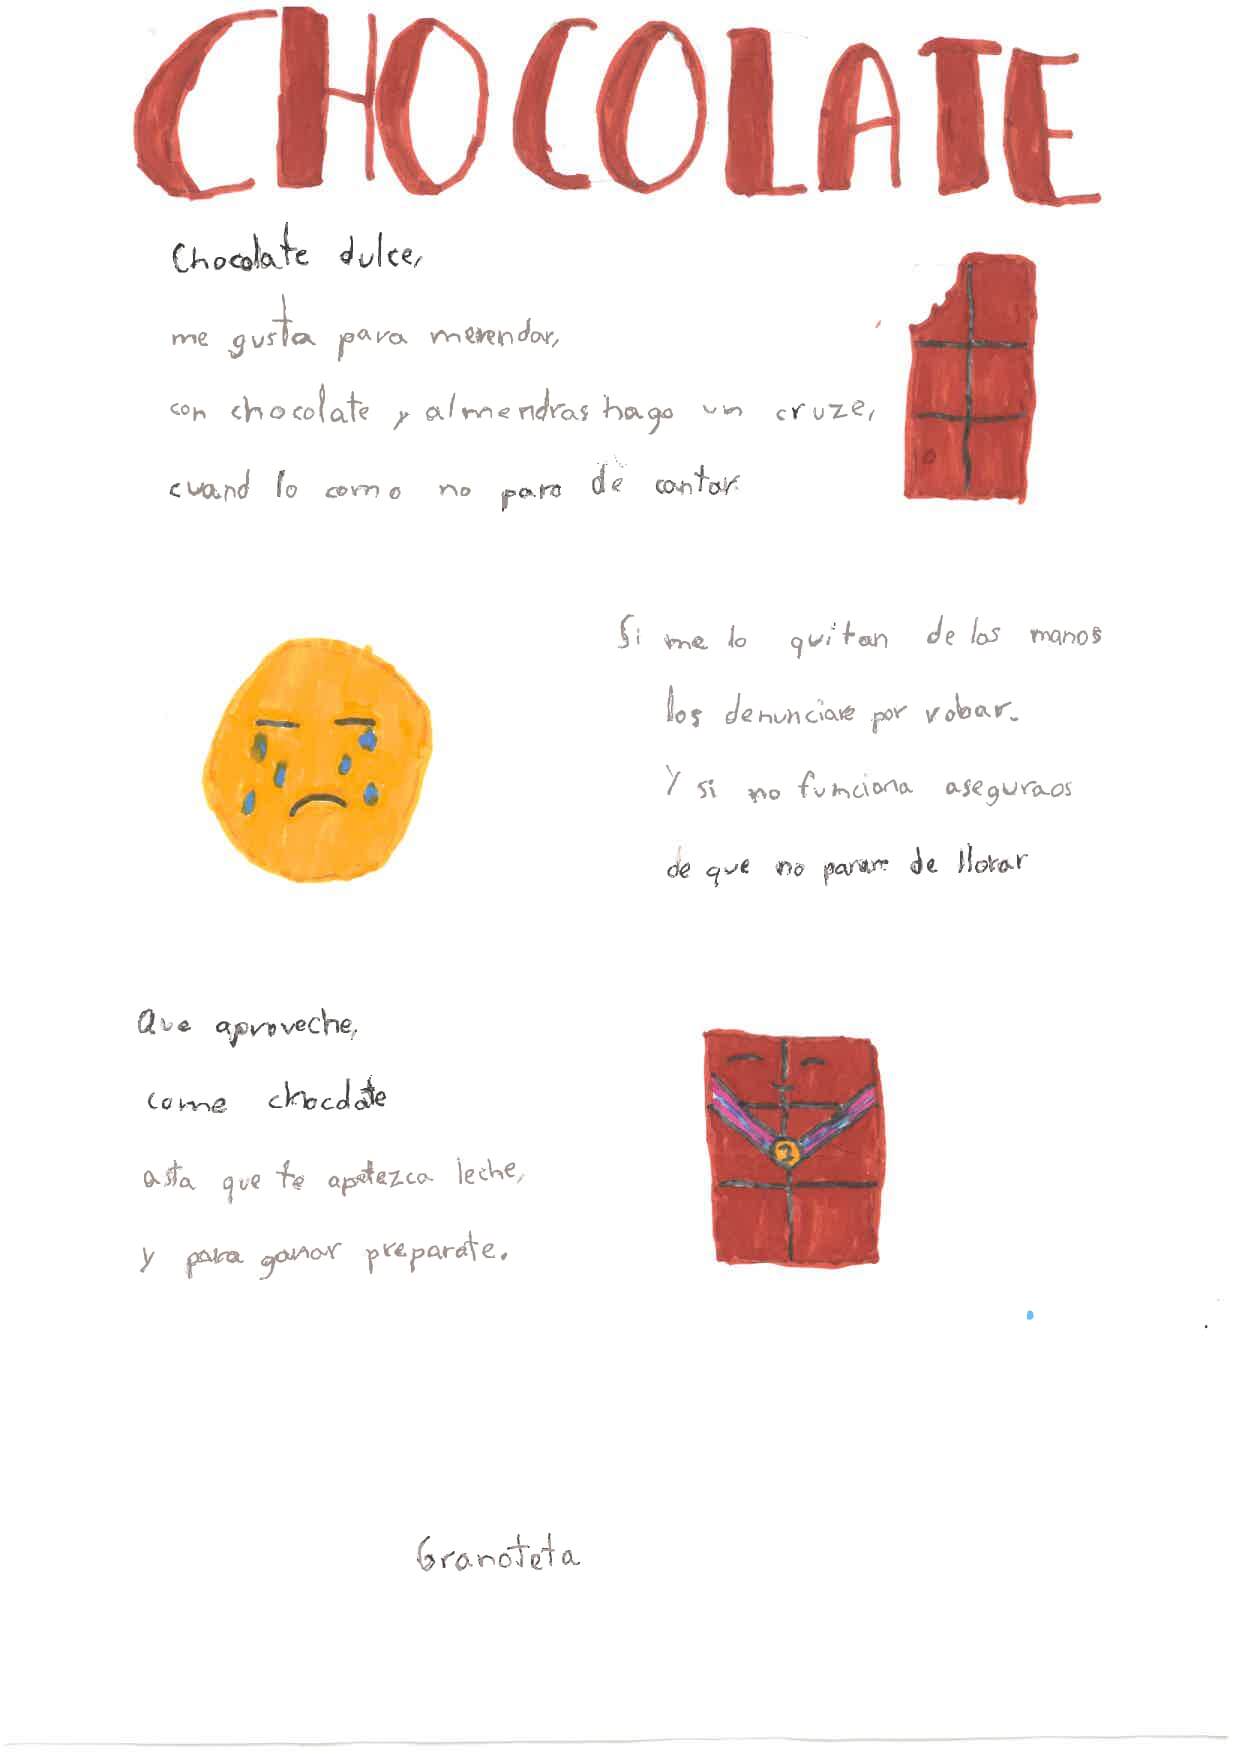 CHOCOLATE
Chocolate dulce,
me gusta para merendar,
con chocolate y almendras hago un cruze,
cuand lo como no paro de cantar.
Si me lo quitan de las manos
los denunciare por robar.
Y si no funciona aseguraos
de que no parare de llorar
Que aproveche,
come chocolate
asta que te apetezca leche,
y para ganar preparate.
Granoteta